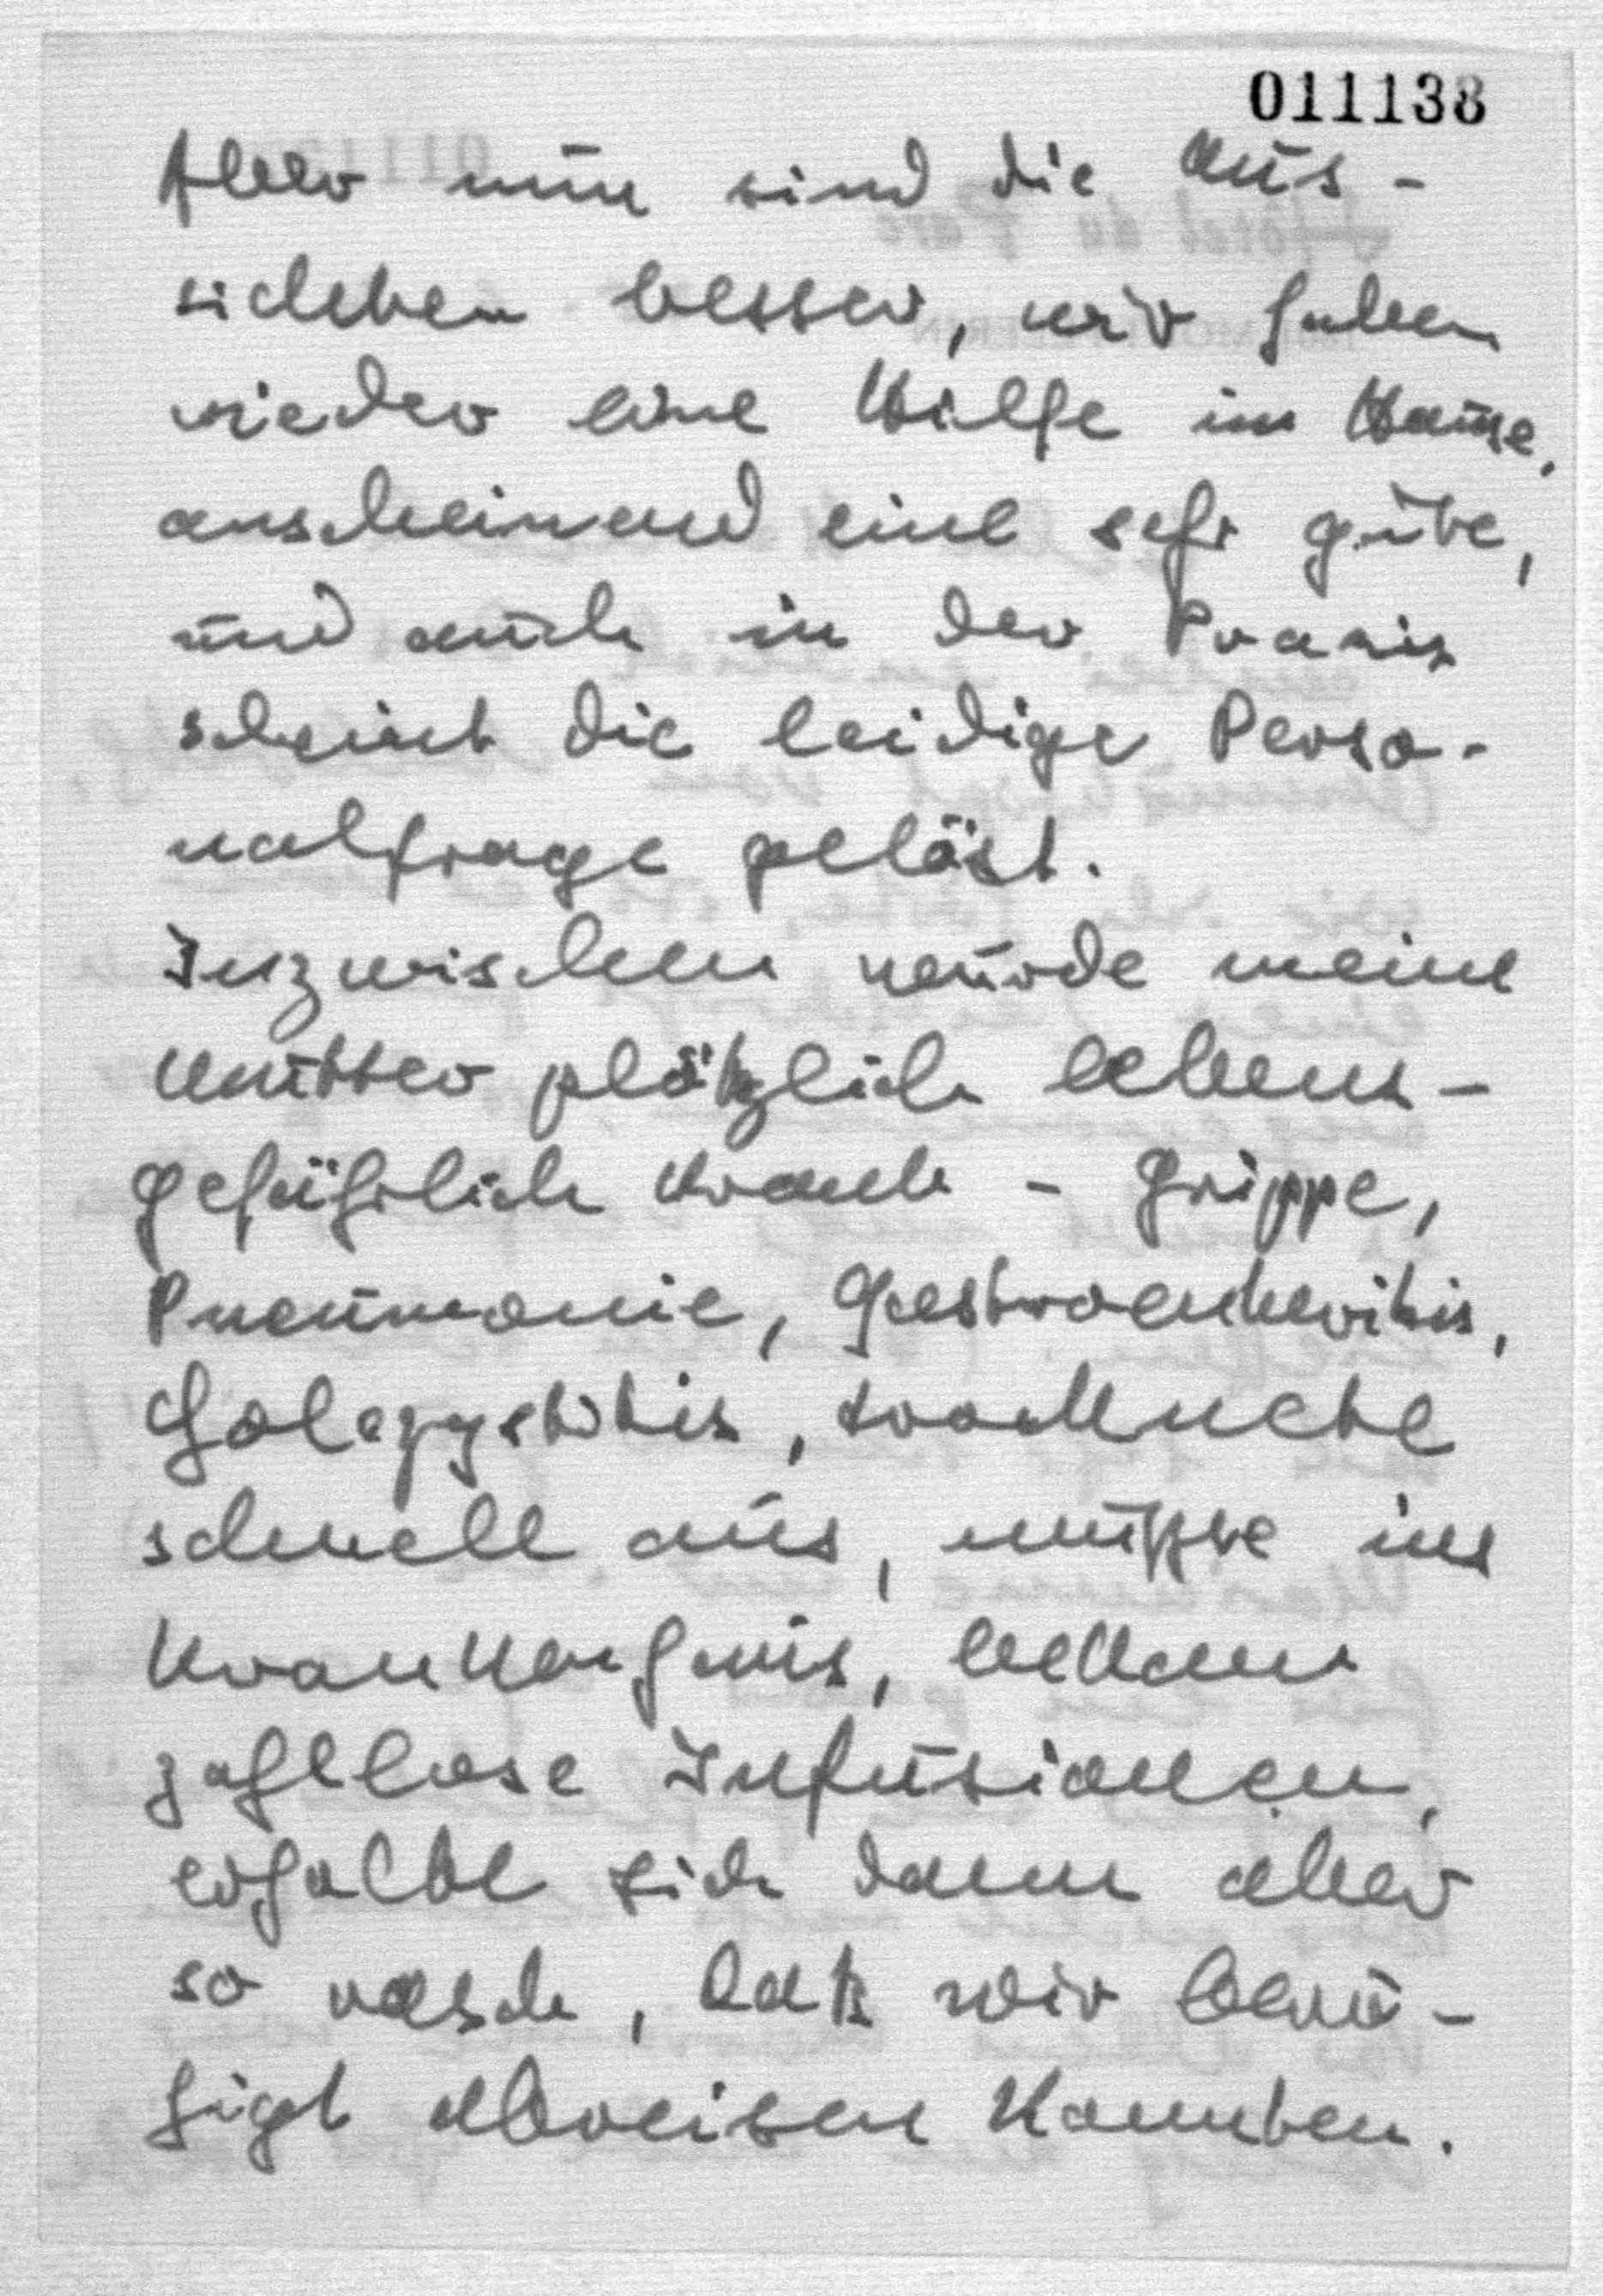 011138
Aber nun sind die Aus-
sichten besser, wir haben
wieder eine Hilfe im Hause,
anscheinend eine sehr gute,
und auch in der Praxis
scheint die leidige Perso-
nalfrage gelöst.
Inzwischen wurde meine
Mutter plötzlich lebens-
gefährlich krank - Grippe,
Pneumonie, Gastroenteritis,
Cholezystitis, trocknete
schnell aus, mußte ins
Krankenhaus, bekam
zahllose Infusionen,
erholte sich dann aber
so rasch, daß wir beru-
higt abreisen konnten.